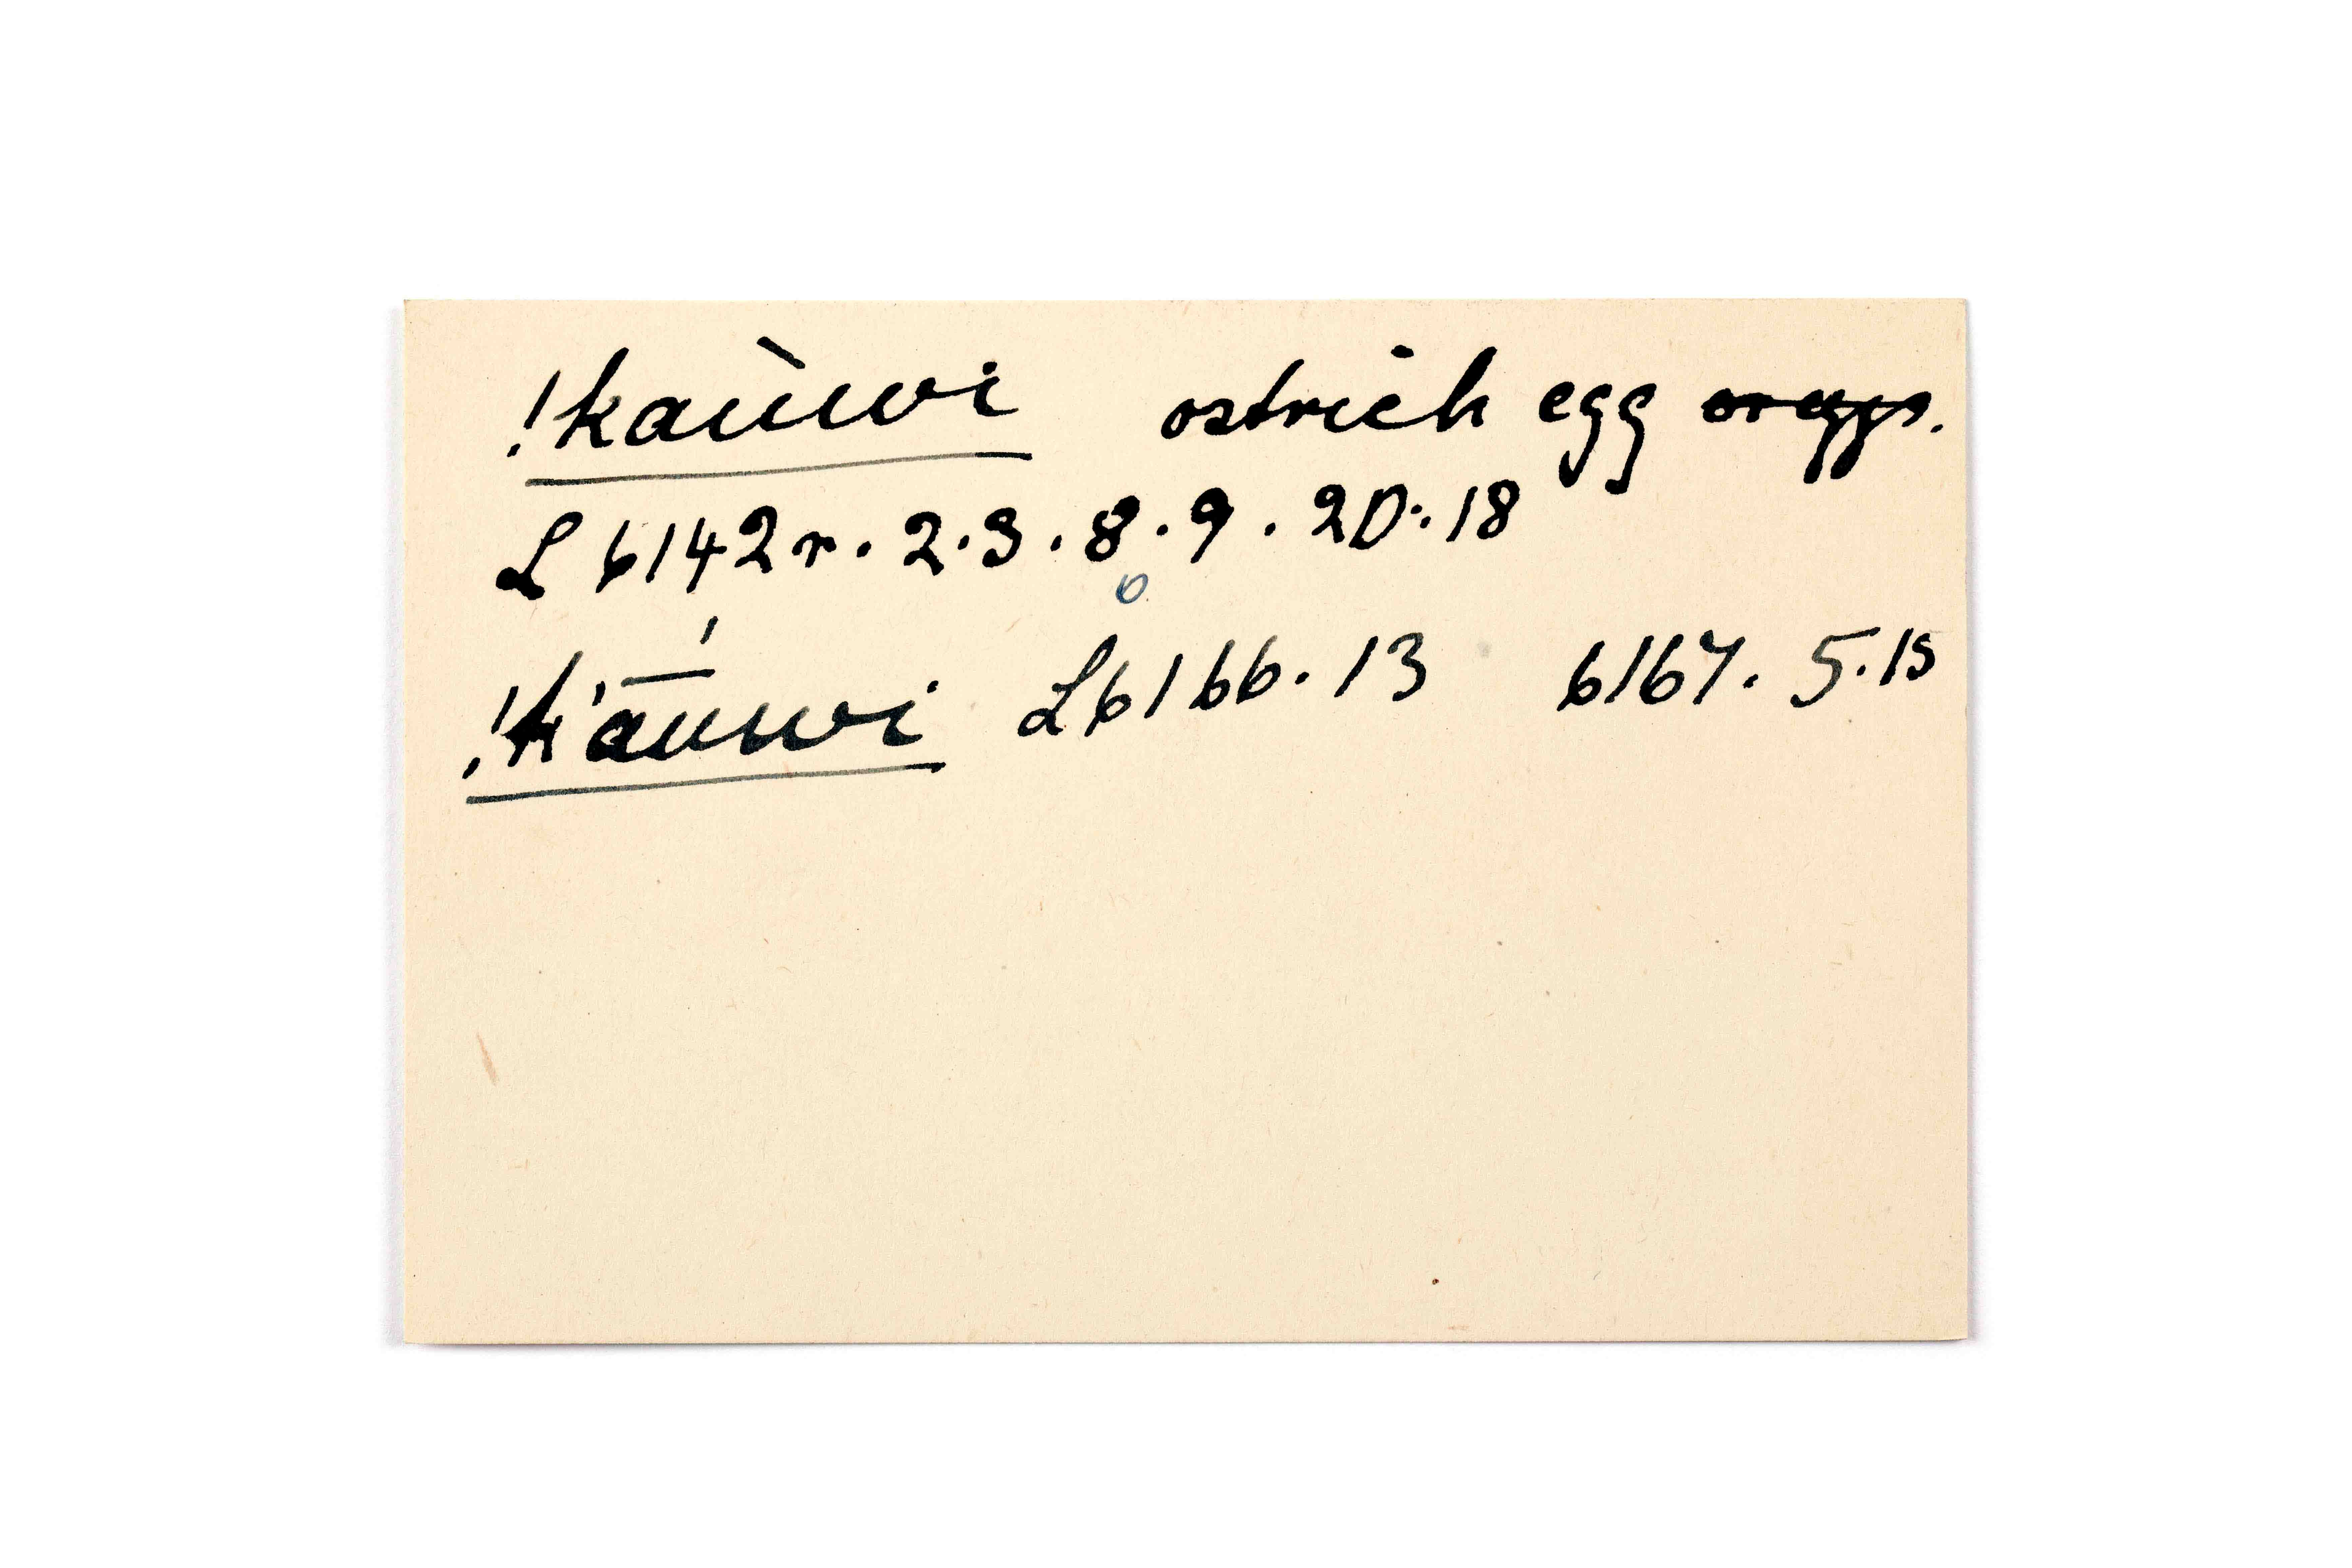 !kaùwi ostrich egg ~~or eggs~~.
L 6142r. 2.3.8.9. 20:. 18
!k'āúwi L6166.13 6167. 5.15